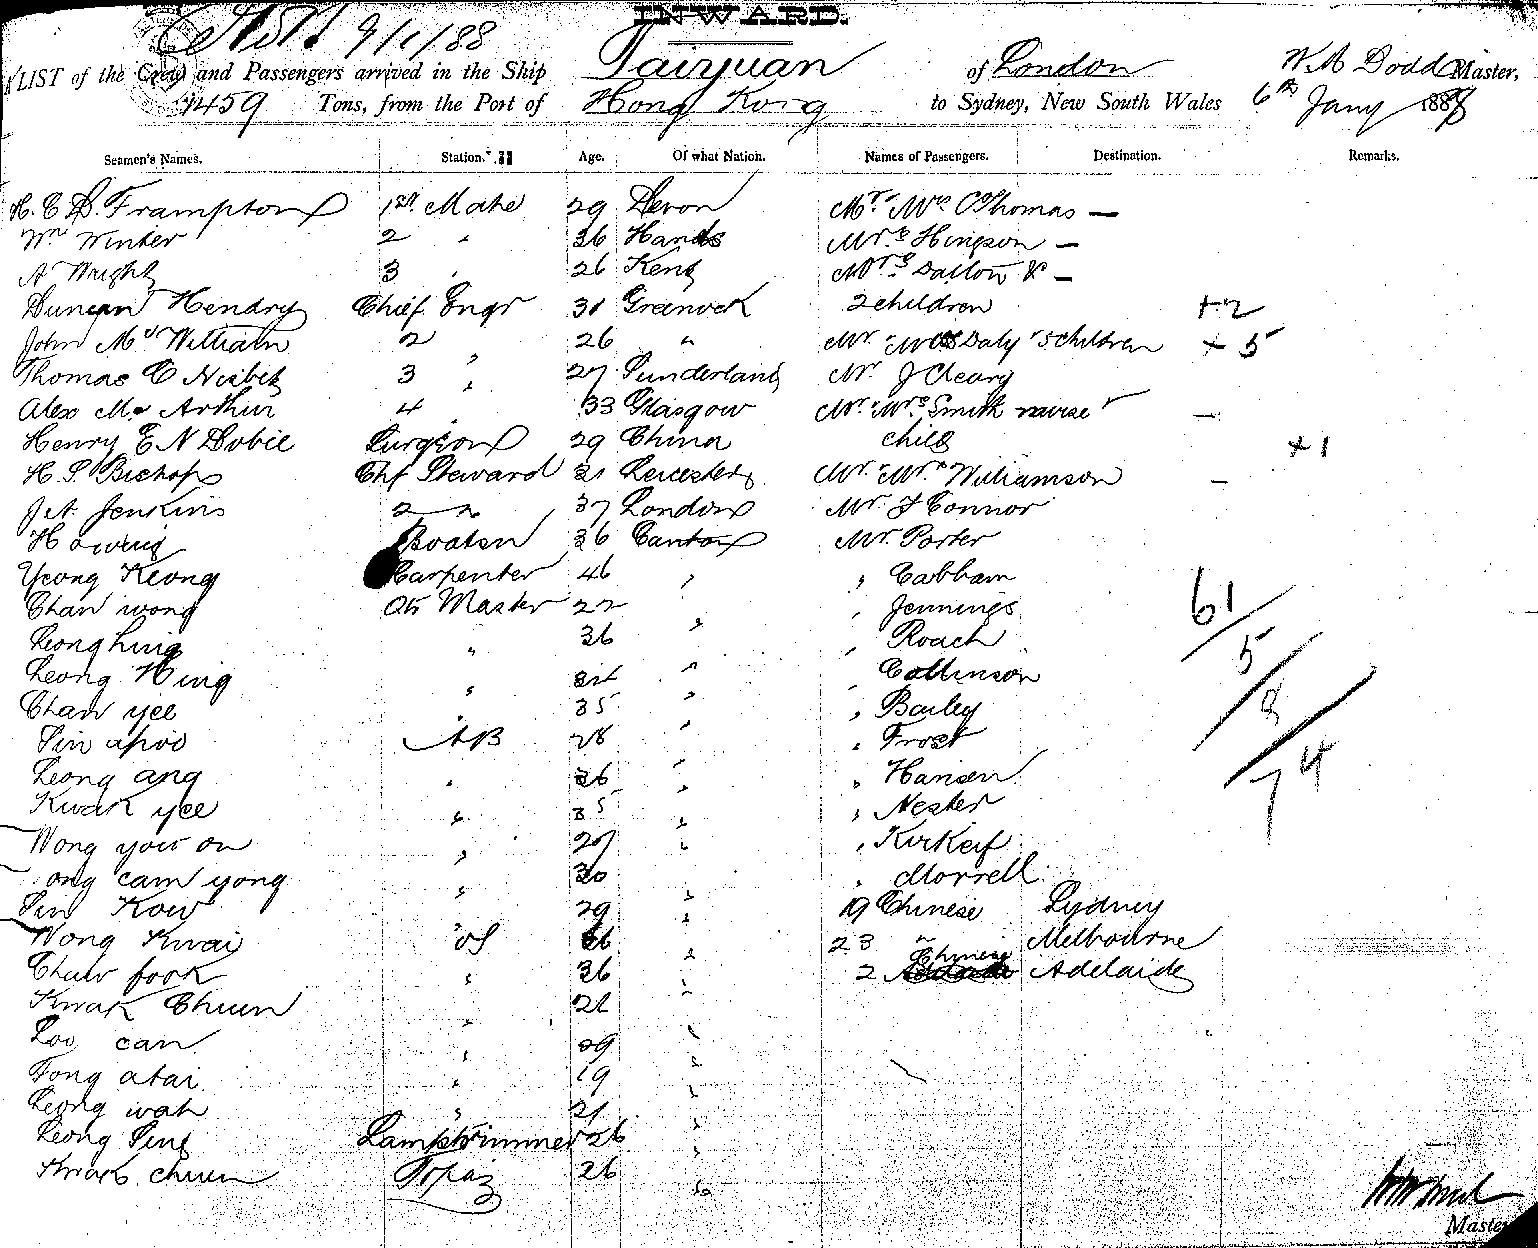 INWARD.
9/1/88
LIST of the Crew and Passengers arrived in the Ship Taiyuan of London W. M. Dodd Master,
1459 Tons, from the Port of Hong Kong to Sydney, New South Wales 6th Jany 1888
Seamen's Names. Station. Age. Of what Nation. Names of Passengers. Destination. Remarks.
H. C. D. Frampton 1st Mate 29 Devon Mr. Mrs Thomas —
Wm Winter 2 " 36 Hants Mr. s Hingson —
A Wright 3 " 26 Kent Mr s Dalton & —
Duncan Hendry Chief Engr 31 Greenock 2 children + 2
John Mc William 2 " 26 " Mr. Mrs Daly 5 children + 5
Thomas C Nisbet 3 " 27 Sunderland Mr. J Cleary
Alex Mc Arthur 4 " 33 Glasgow Mr. Mrs Smith nurse —
Henry E N Dobie Surgeon 29 China child + 1
H. S. Bishop Chf Steward 31 Leicester Mr. Mrs Williamson —
J. A. Jenkins 2 " 37 London Mr. Connor
Boatsn 36 Canton Mr. Porter
Yeong Keong Carpenter 46 " " Cabbam
Chan wong Qtr Master 22 " Jennings
Leong hing " 36 " " Roach
Leong Hing " " " Collinson
Chan yee " 35 " " Bailey
Sin apoo AB 28 " " Frost
Leong ang " 36 " " Hansen
Kwak yee " 35 " " Nester
Wong yow on " 27 " "
ong cam yong " 30 " Morrell
Sin Kow " 29 " 19 Chinese Sydney
Wong Kwai OS 26 " 23 " Melbourne
Chaw fook " 36 " 2 Chinese Adelaide
Kwak Chuen " "
Loo can " 29 "
Fong atai " 19 "
Leong wah " 21 "
Leong Sing Lamptrimmer 26 "
Kwak chuen Topaz 26 "
61
5
8
74
Master